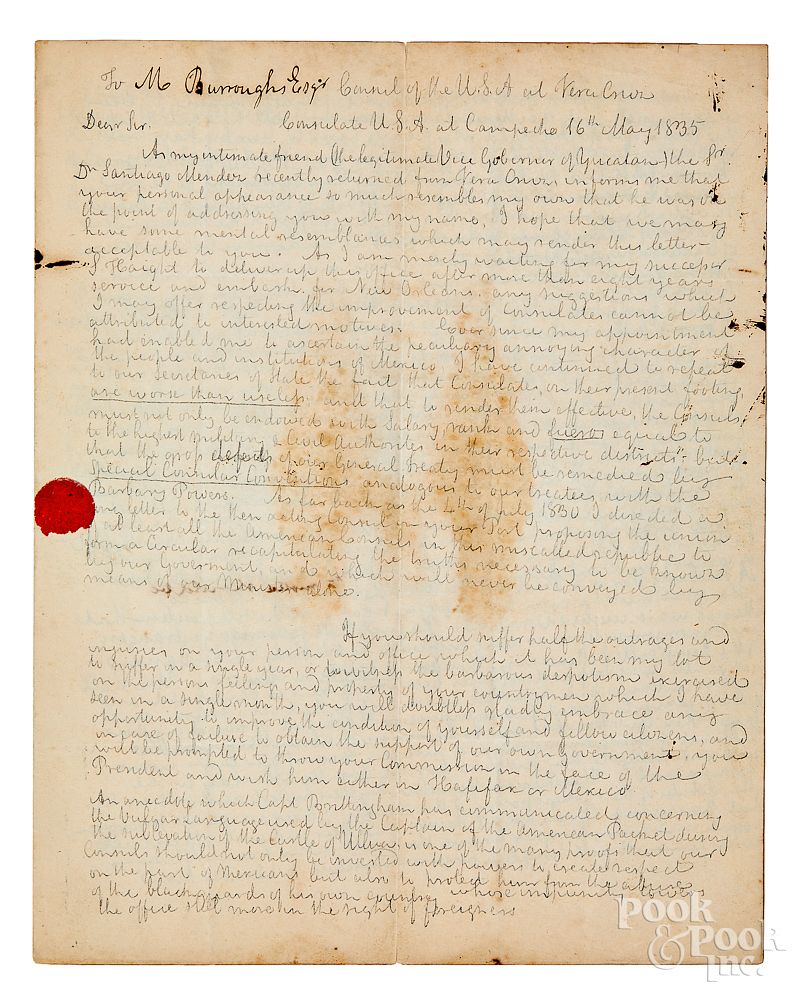 To M Burroughs Esqr Consul of the U.S.A at Vera Cruz
Dear Sir. Consulate U.S.A. at Campeche 16th May 1835
As my intimate friend (the legitimate Vice Goberner of Yucatan) the Sr.
Dn Santiago Mendez recently returned from Vera Cruz, informs me that
your personal appearance so much resembles my own that he was on
the point of addressing you with my name, I hope that we may
have some mental resemblances which may render this letter
acceptable to you. As I am merely waiting for my successor
S Haight to deliver up this office after more than eight years
service and embark for New Orleans, any suggestions which
I may offer respecting the improvement of consulates cannot be
attributed to interested motives. Ever since my appointment
had enabled me to ascertain the peculiary annoying character of
the people and institutions of Mexico, I have continued to repeat
to our Secretaries of State the fact that Consulates, on their present footing
are worse than useless, and that to render them effective, the Consuls
must not only be endowed with Salary, rank and fueros equal to
to the highest military & Civil Authorities in their respective districts - but
that the gross defects of our General treaty must be remedied by
Special Consular Conventions analogous to our treaties with the
Barbary Powers. As far back as the 4th of July 1830 I directed a
letter to the then acting Consul in your Port proposing the union
of at least all the American Consuls in this miscalled republic to
form a Circular recapitulating the truths necessary to be known
by our Goverment, and which will never be conveyed by
means of our Ministers alone.
If you should suffer half the outrages and
injuries on your person and office which it has been my lot
to suffer in a single year, or to witness the barbarous despotism exercised
on the persons feelings and property of your countrymen which I have
seen in a single month, you will doubtless gladly embrace any
opportunity to improve the condition of yourself and fellow citizens, and
in case of failure to obtain the support of our own Government, you
will be prompted to throw your Commission in the face of the
President and wish him either in Halifax or Mexico
An anecdote which Capt Brittingham has communicated concerning
the vulgar language used by the Captain of the American Packet during
the of the Castle of Ulua, is one of the many proofs that our
Consuls should not only be invested with powers to create respect
on the part of Mexicans but also to protect him from the abuse
of the blackguards of his own country whose impunity lowers
the office still more in the sight of foreigners
Pook
& Pook
Inc.